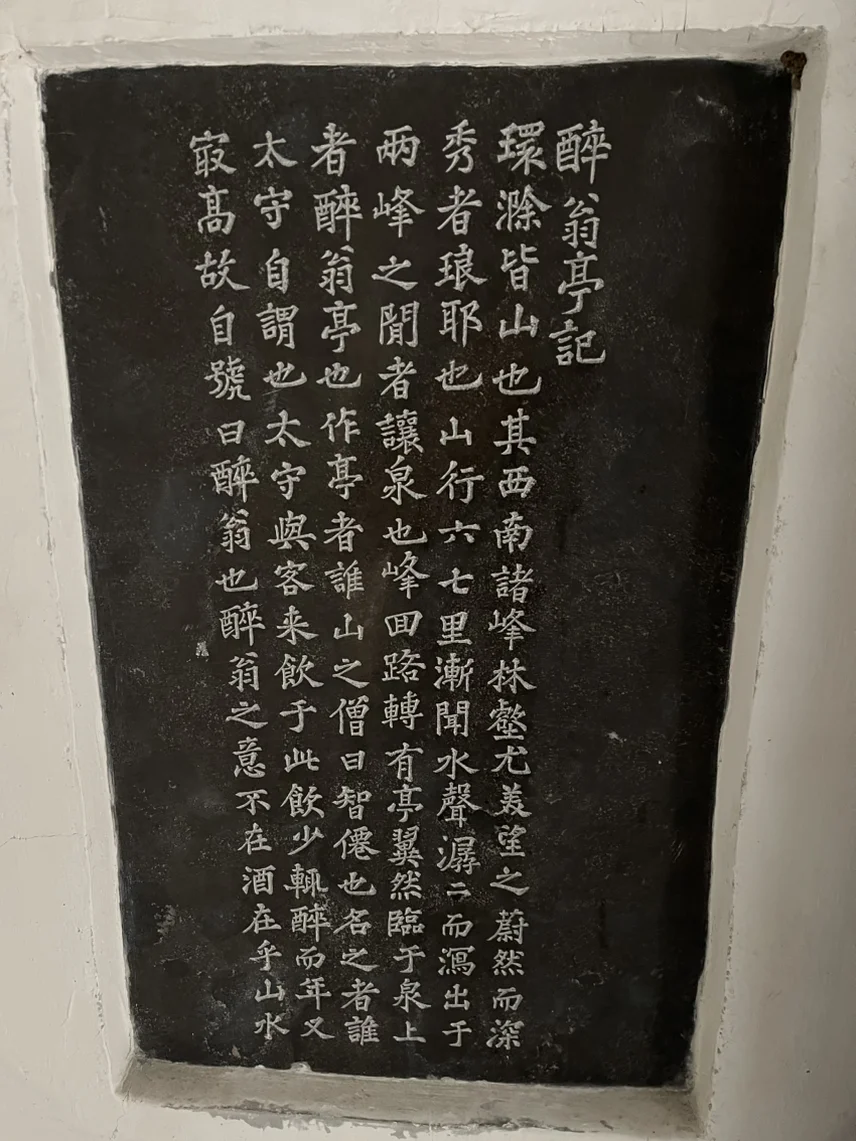 醉翁亭記
環滁皆山也其西南諸峰林壑尤美望之蔚然而深
秀者琅耶也山行六七里漸聞水聲潺二而瀉出于
兩峰之間者讓泉也峰回路轉有亭翼然臨于泉上
者醉翁亭也作亭者誰山之僧曰智僊也名之者誰
太守自謂也太守與客来飲于此飲少輒醉而年又
㝡髙故自號曰醉翁也醉翁之意不在酒在乎山水